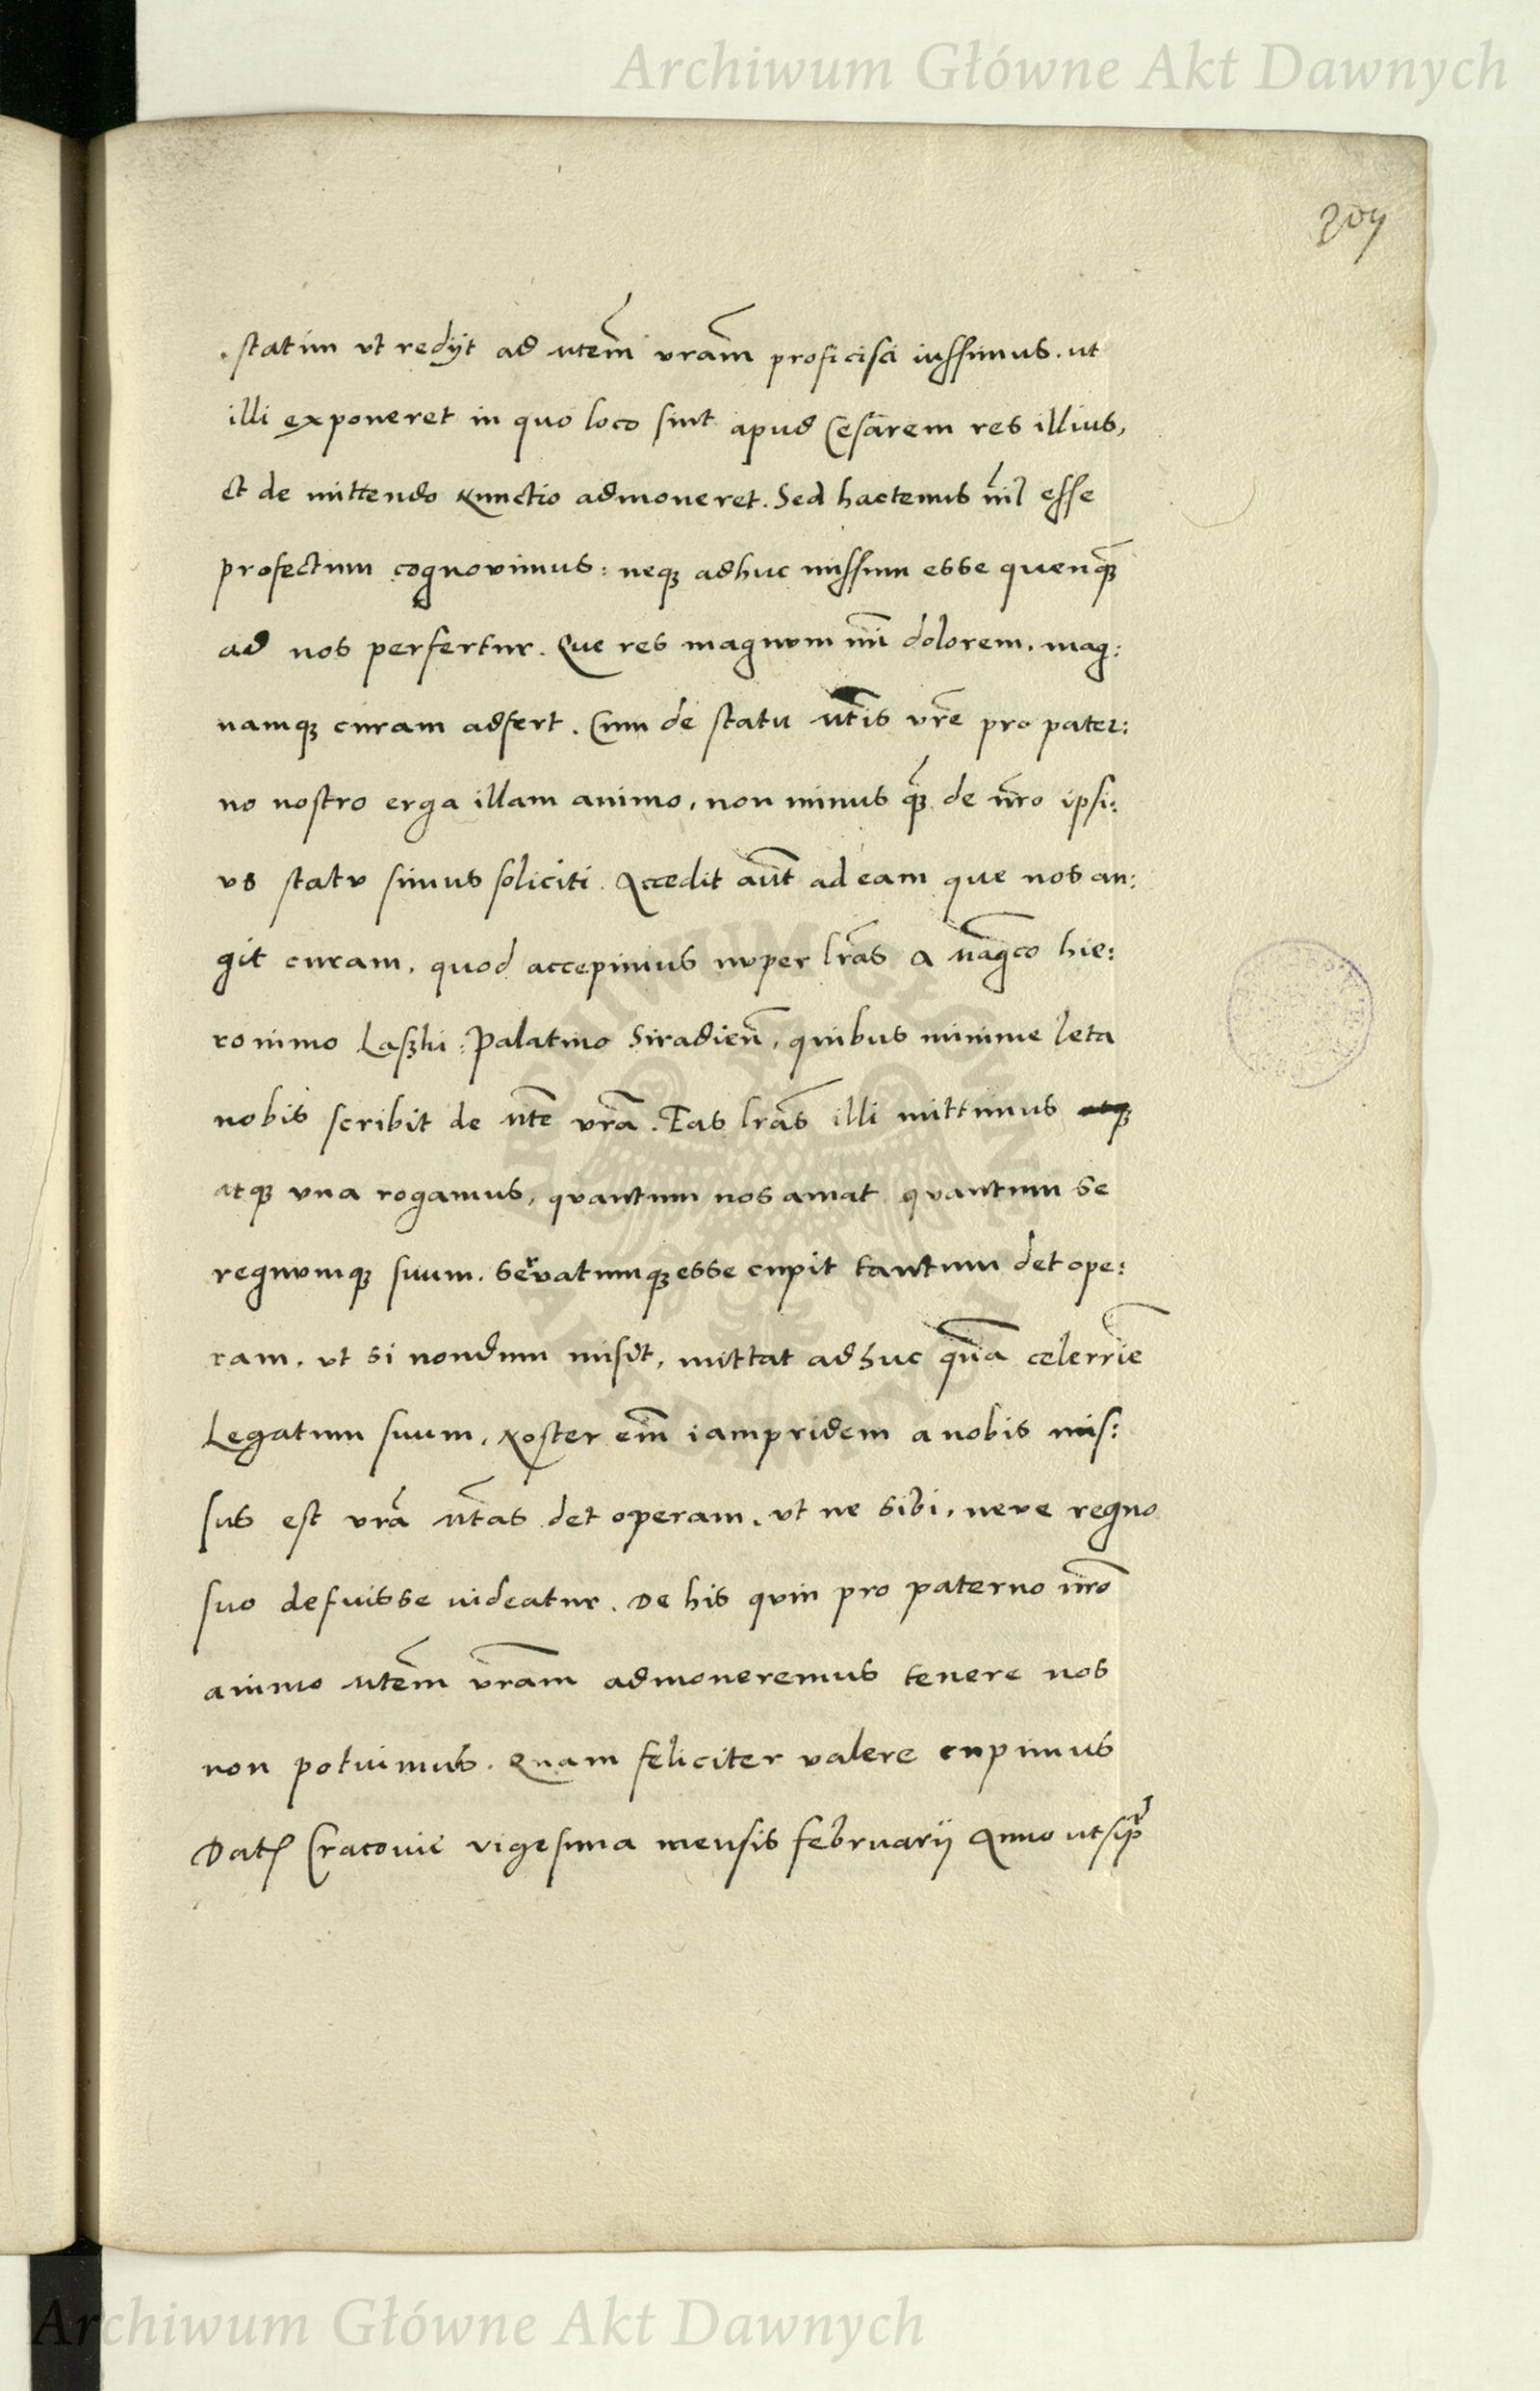 Archiwum Główne Akt Dawnych
statim ut redijt ad Mtem vram proficisci iussimus. ut
illi exponeret in quo loco sint apud Cesarem res illius,
et de mittendo Nunctio admoneret. Sed hactenus nil esse
profectum cognovimus: neqz adhuc missum esse quenqz
ad nos perfertur. Que res magnvm nni dolorem. mag:
namqz curam adfert. Cum de statu Mtis vre pro pater:
no nostro erga illam animo, non minus qz de nro ipsi:
vs statv simus soliciti. Accedit aut ad eam que nos an:
git curam, quod accepimus nvper lras a Magco hie:
ronimo Laszki: Palatino Siradien, quibus minime leta
nobis scribit de Mte vra. Eas lras illi mittimus atqz
atqz vna rogamus, qvantum nos amat qvantum se
regnvmqz suum. servatumqz esse cupit tantum det ope:
ram. vt si nondum misit, mittat adhuc qua celerrie
Legatum suum. Noster em iampridem a nobis mis:
sus est vra Mtas det operam. vt ne sibi, neve regno
suo defuisse uideatur. De his qvin pro paterno nro
animo Mtem vram admoneremus tenere nos
non potuimus. Quam feliciter valere cupimus
Dat Cracouie vigesima mensis februarij Anno ut sup
Archiwum Główne Akt Dawnych